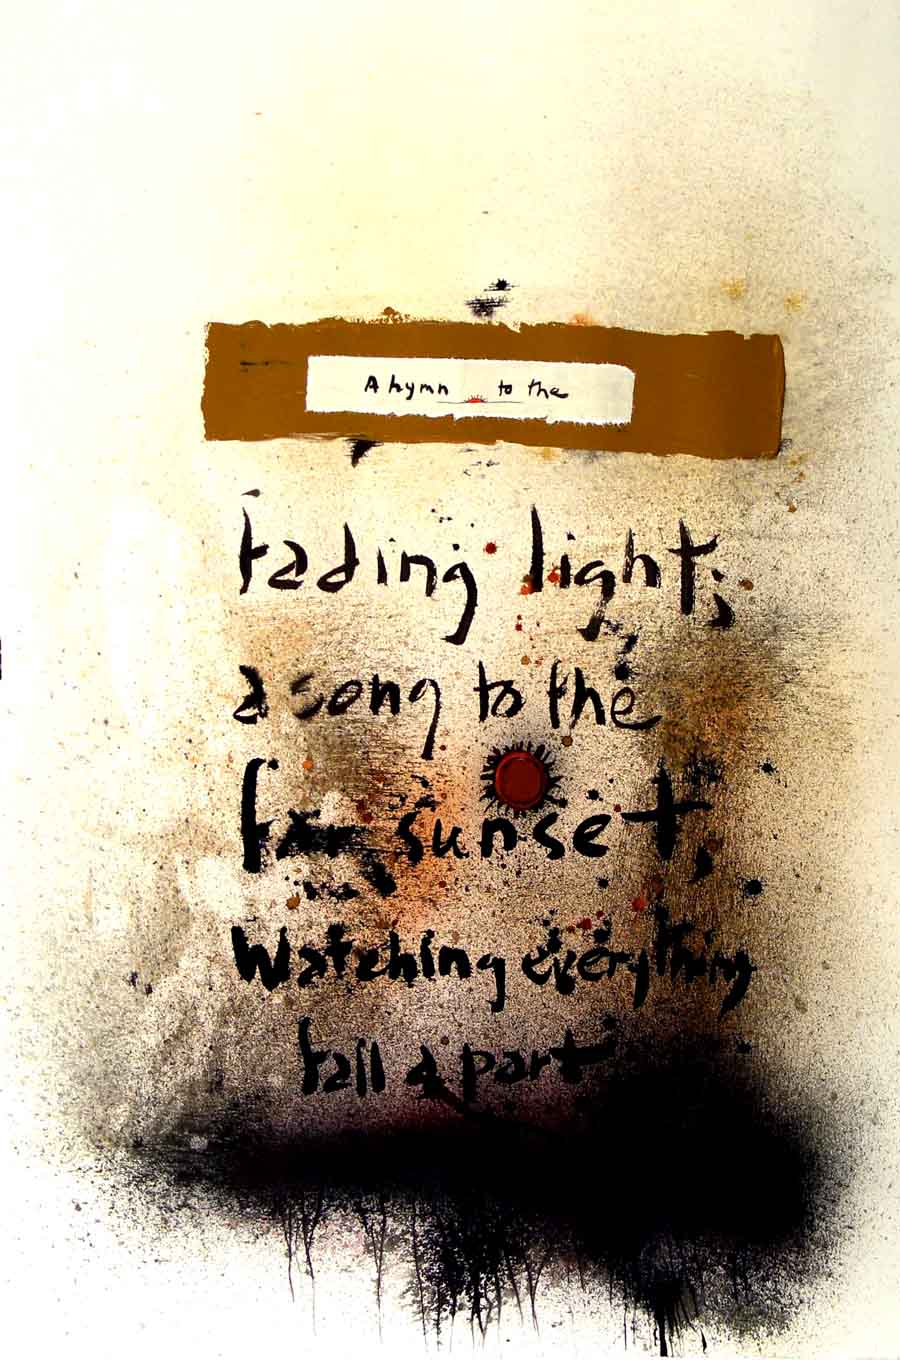 A hymn to the
fading light;
a song to the
far sunset,
Watching everything
fall a part